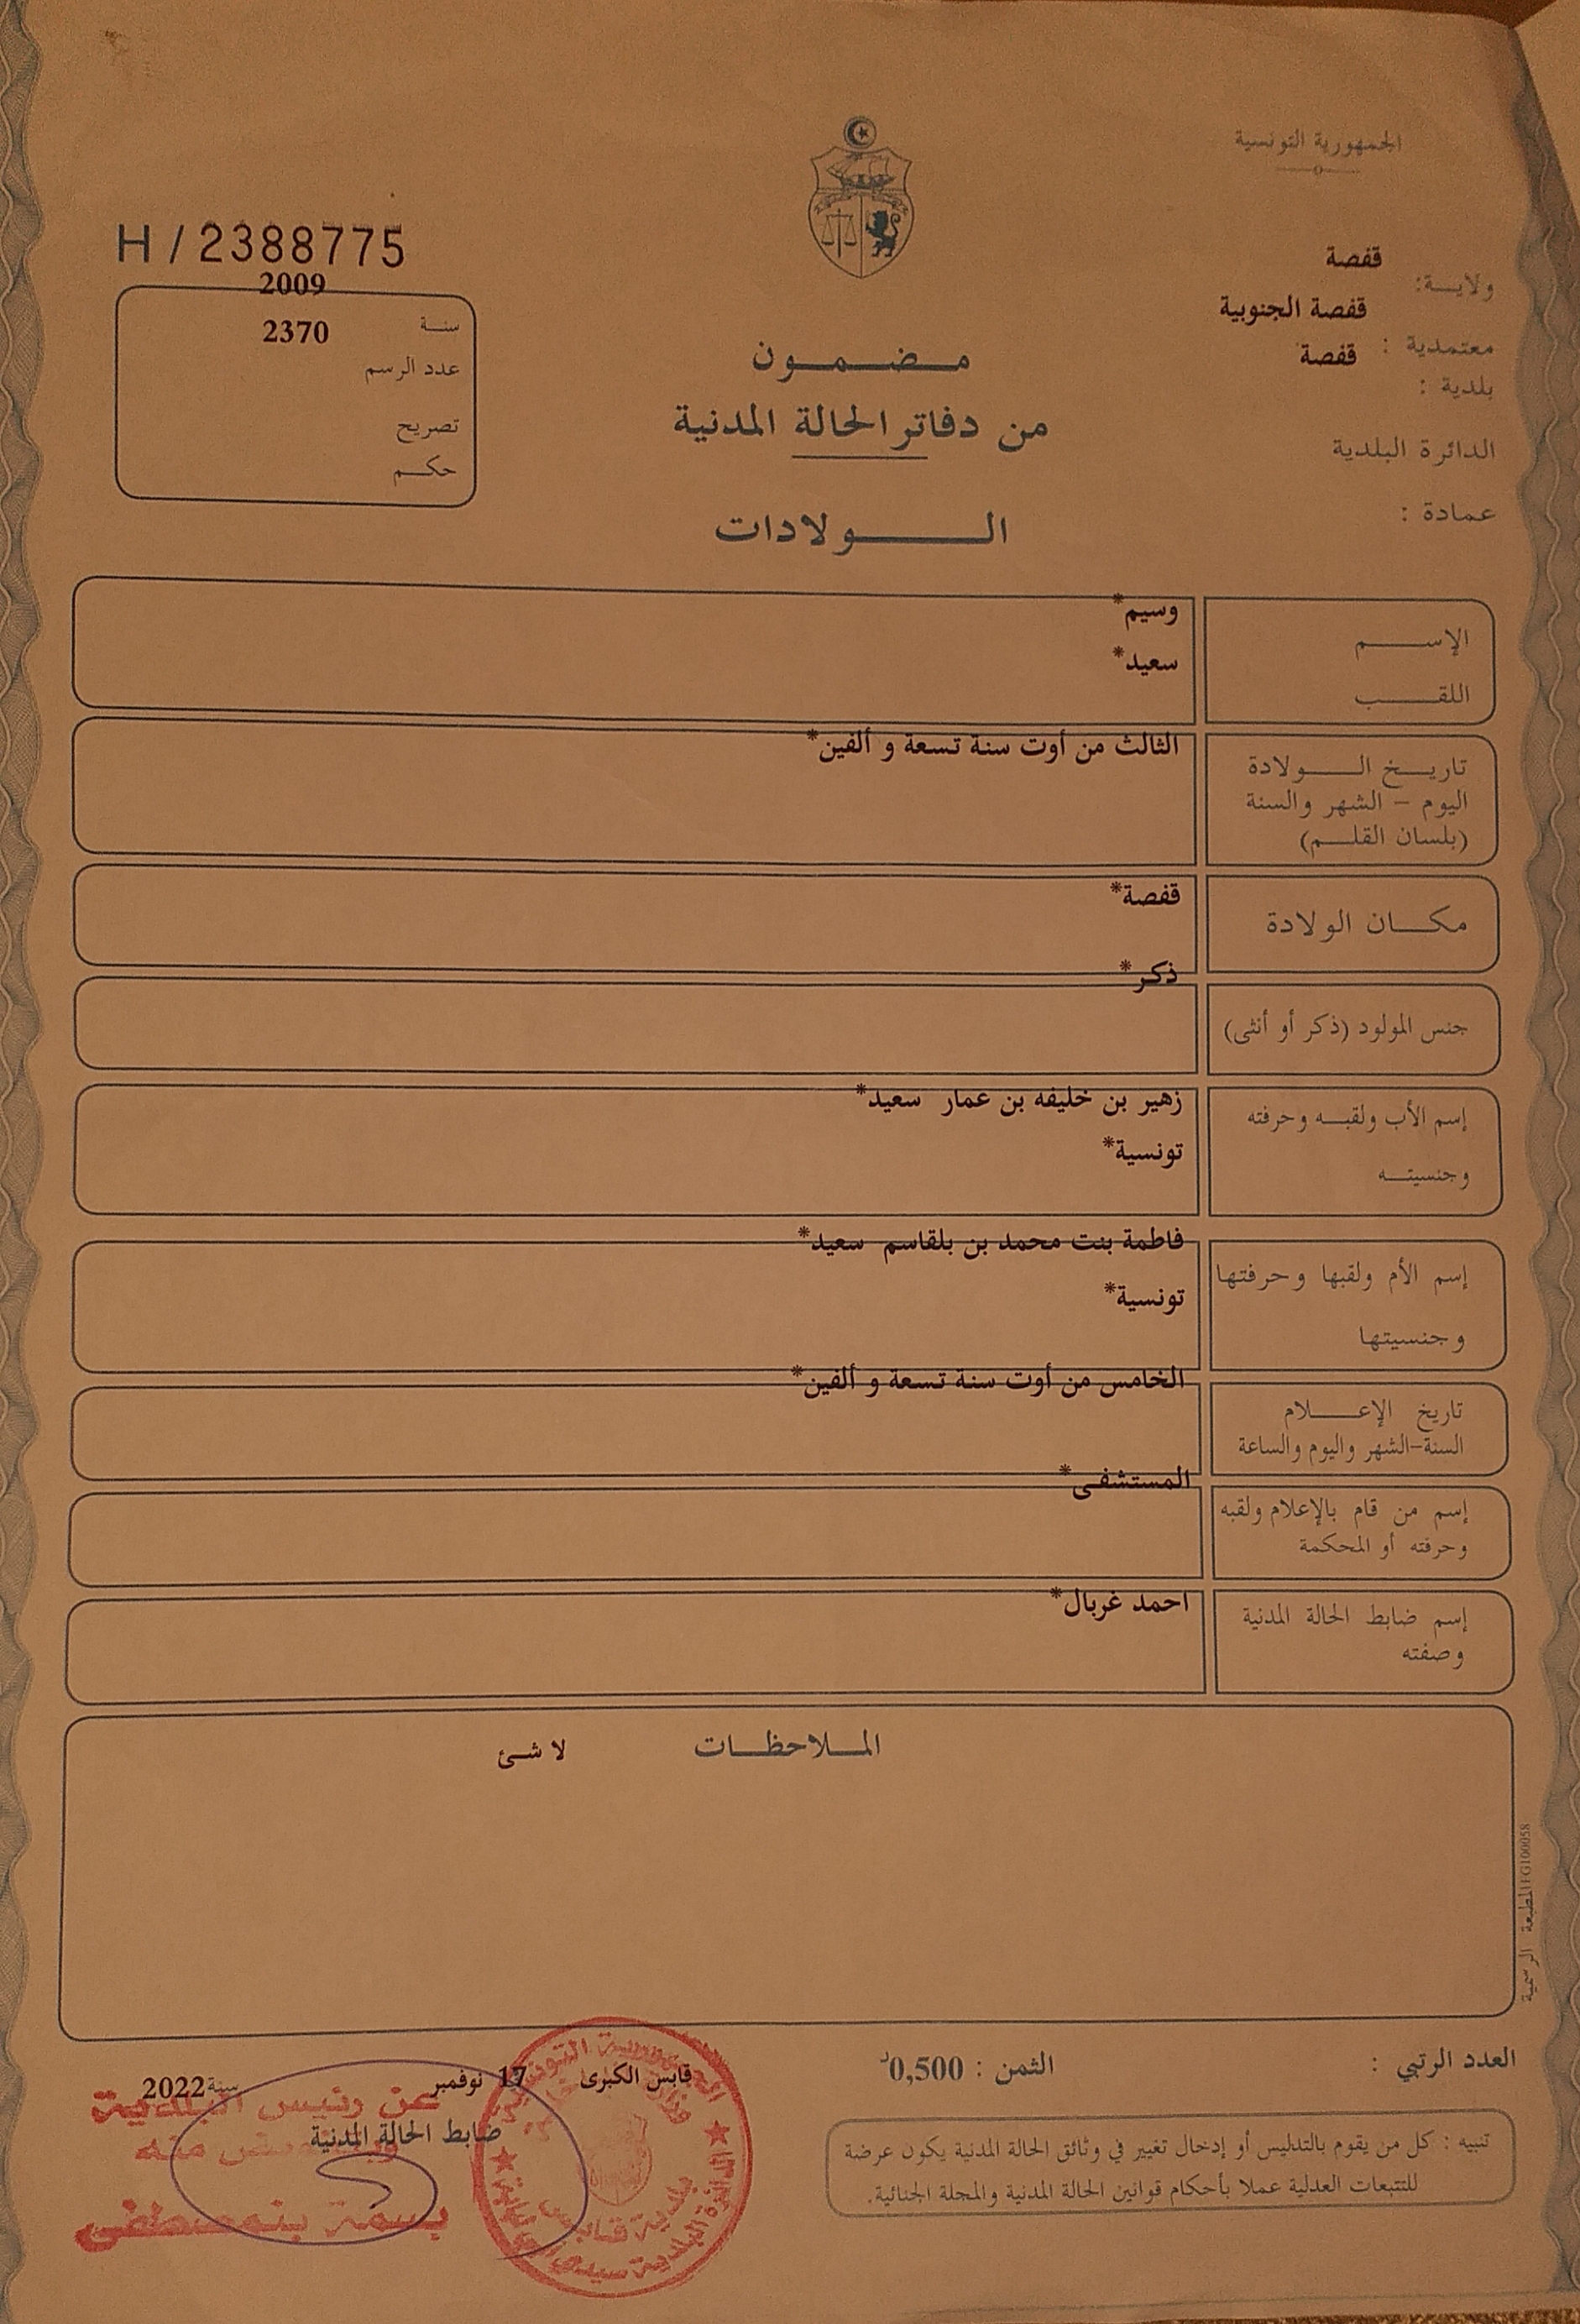 الجمهورية التونسية
ولاية: قفصة
معتمدية : قفصة الجنوبية
بلدية : قفصة
الدائرة البلدية
عمادة :
H / 2388775
سنة 2009
عدد الرسم 2370
تصريح
حكم
مضمون
من دفاتر الحالة المدنية
الولادات
الإسم وسيم*
اللقب سعيد*
تاريخ الولادة الثالث من أوت سنة تسعة و ألفين*
اليوم - الشهر والسنة
(بلسان القلم)
مكان الولادة قفصة*
جنس المولود (ذكر أو أنثى) ذكر*
إسم الأب ولقبه وحرفته زهير بن خليفه بن عمار سعيد*
وجنسيته تونسية*
إسم الأم ولقبها وحرفتها فاطمة بنت محمد بن بلقاسم سعيد*
وجنسيتها تونسية*
تاريخ الإعلام الخامس من أوت سنة تسعة و ألفين*
السنة-الشهر واليوم والساعة
إسم من قام بالإعلام ولقبه المستشفى*
وحرفته أو المحكمة
إسم ضابط الحالة المدنية احمد غربال*
وصفته
الملاحظات لا شئ
المطبعة الرسمية FG100058
العدد الرتبي :
الثمن : 0,500د
قابس الكبرى 17 نوفمبر سنة 2022
ضابط الحالة المدنية
عن رئيس البلدية
بسمة بنمصطفى
بلدية قابس
تنبيه : كل من يقوم بالتدليس أو إدخال تغيير في وثائق الحالة المدنية يكون عرضة
للتتبعات العدلية عملا بأحكام قوانين الحالة المدنية والمجلة الجنائية.